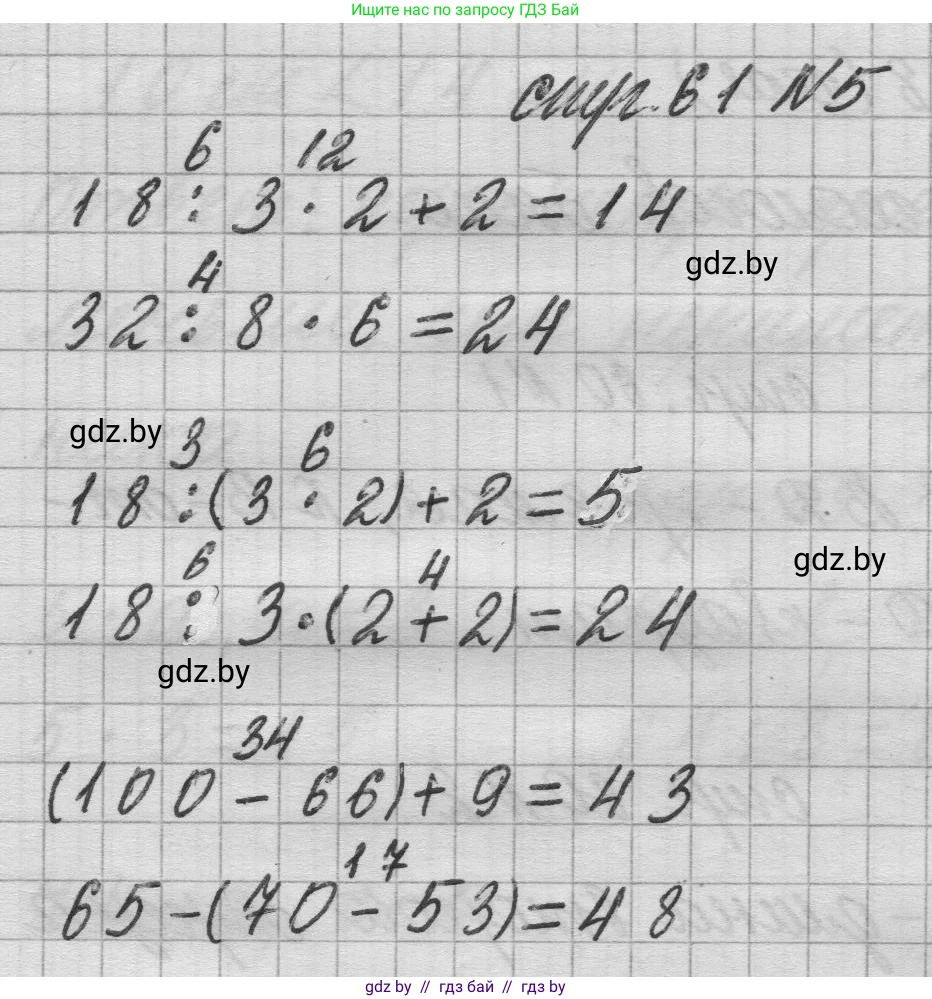 Ищите нас по запросу ГДЗ Бай
стр. 61 №5
6 12
18 : 3 · 2 + 2 = 14
gdz.by
4
32 : 8 · 6 = 24
gdz.by
3 6
18 : (3 · 2) + 2 = 5
gdz.by
6 4
18 : 3 · (2 + 2) = 24
gdz.by
34
(100 - 66) + 9 = 43
17
65 - (70 - 53) = 48
gdz by // гдз бай // gdz by